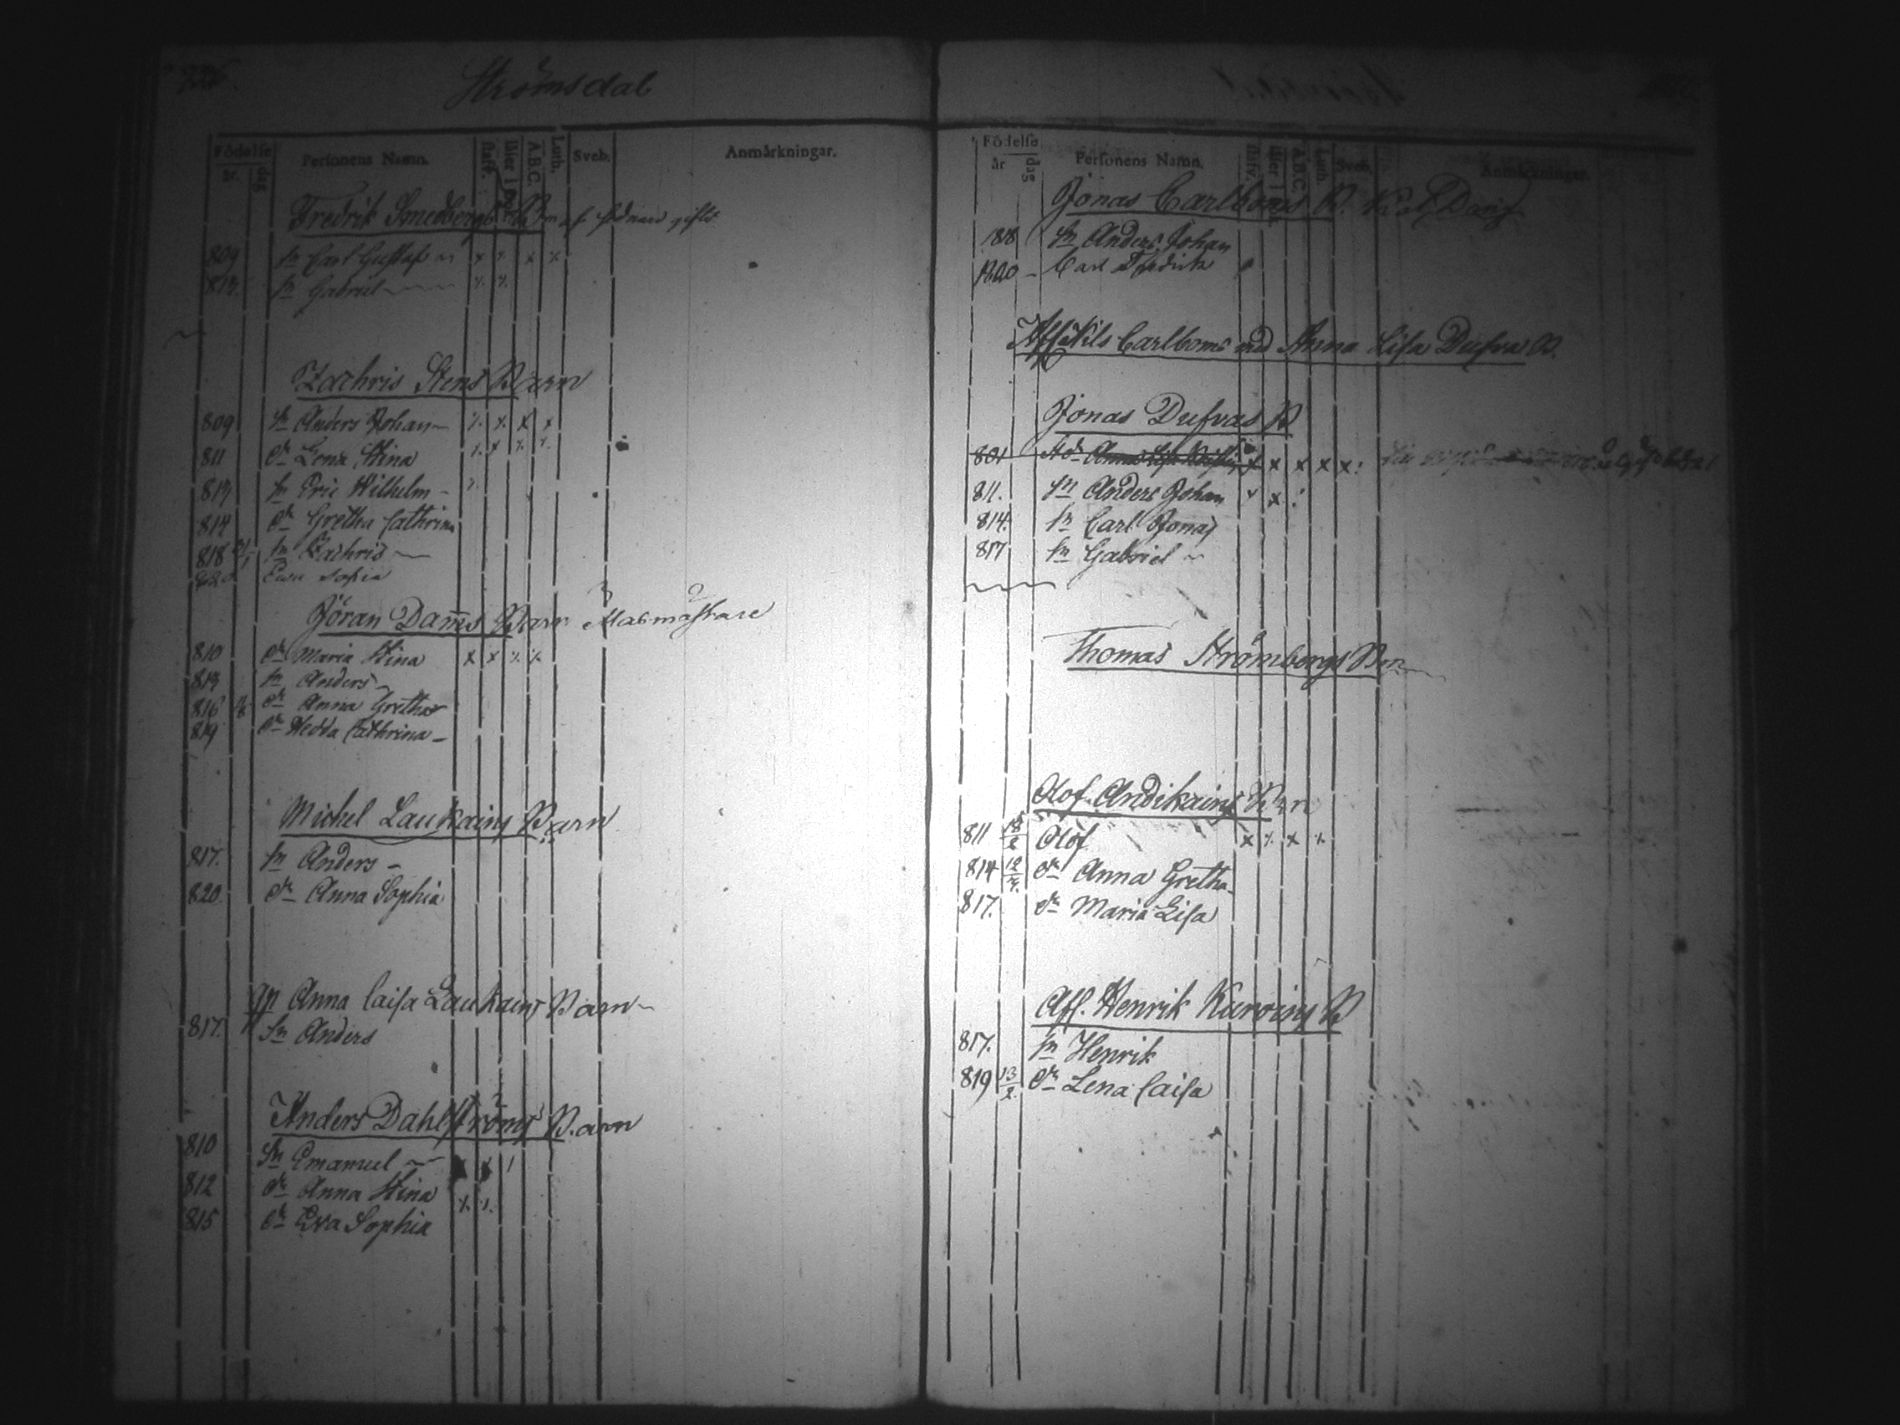 Strömsdal
Födelse
år. dag
Personens Namn.
stafv. läser i bok A.B.C. Luth. Sveb.
Anmärkningar.
Fredrik Smedbergs Barn af förra giftet
809 Sn Carl Gustaf x x x x
813. Sn Gabriel x x
Zachris Stens Barn
809 Sn Anders Johan x x x x
811 dr Lena Stina x x x x
813 Sn Eric Wilhelm x
814 dr Gretha Cathrina
818 Sn Zachris
820 Eva Sofia
Jöran Damms Barn Masmästare
810 dr Maria Stina x x x x
813 Sn Anders
816 dr Anna Gretha
819 dr Hedda Cathrina
Michel Laukains Barn
817. Sn Anders
820. dr Anna Sophia
Anna Caisa Laukains Barn
817. Sn Anders
Anders Dahlströms Barn
810 Sn Emanuel
812 dr Anna Stina x x
815 dr Eva Sophia
Födelse
år dag
Personens Namn.
stafv. läser i A.B.C. Luth. Sveb.
Anmärkningar.
Jonas Carlboms B.
1818 Sn Anders Johan
1820 Carl Fredrik
Aff. Nils Carlboms med Anna Lisa Dufva B.
Jonas Dufvas B
801 x x x x x
811. Sn Anders Johan x x
814. Sn Carl Jonas
817 Sn Gabriel
Thomas Strömbergs Barn
Olof Andikains Barn
811 18/2 Olof x x x x
814 12/7 dr Anna Gretha
817. dr Maria Lisa
Aff. Henrik Kuroins B
817. Sn Henrik
819 13/2 dr Lena Caisa